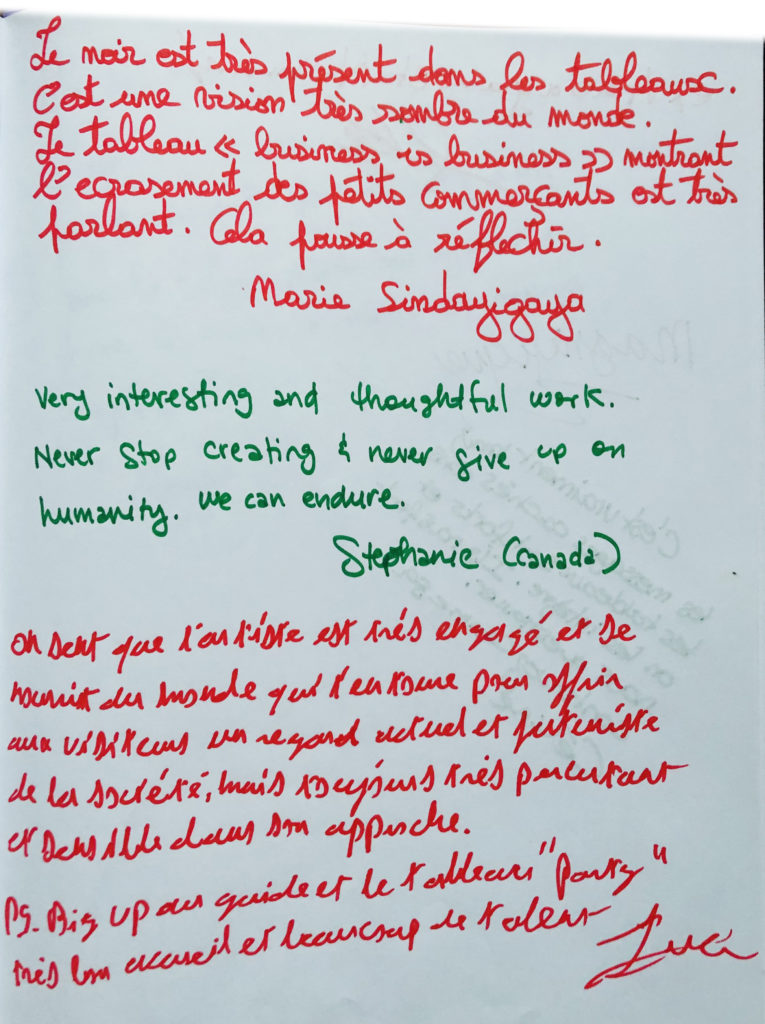 Le noir est très présent dans les tableaux.
C'est une vision très sombre du monde.
Le tableau « business is business » montrant
l'ecrasement des petits commerçants est très
parlant. Cela pousse à réflechir.
Marie Sindayigaya
Very interesting and thoughtful work.
Never stop creating & never give up on
humanity. We can endure.
Stephanie (Canada)
on sent que l'artiste est très engagé et se
nourrit du monde qui l'entoure pour offrir
aux visiteurs un regard actuel et futuriste
de la société, mais toujours très percutant
et sensible dans son approche.
PS. Big up au guide et le tableau "party"
très bon accueil et beaucoup de talent